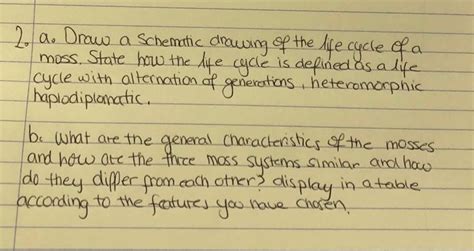 2. a. Draw a schematic drawing of the life cycle of a
moss. State how the life cycle is defined as a life
cycle with alternation of generations, heteromorphic
haplodiplomatic.
b. What are the general characteristics of the mosses
and how are the three moss systems similar and how
do they differ from each other? display in a table
according to the features you have chosen.